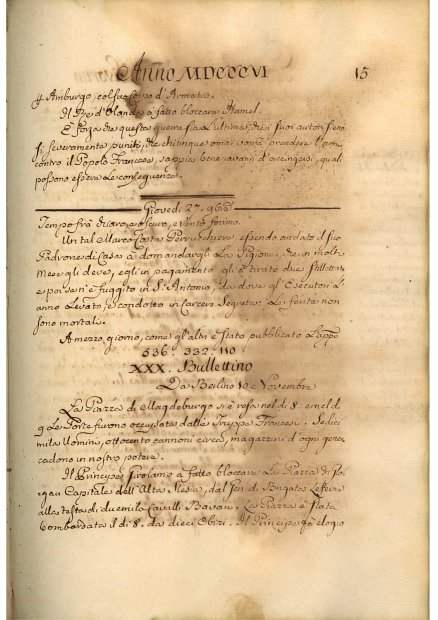 Anno MDCCCVI 15
p Amburgo, col suo corpo d'Armata.
Il Re d'Olanda à fatto bloccare Hamel.
È forza che questa guerra sia l'ultima, che i suoi autori sieno
sì severamente puniti, che chiunque omai vorrà prendere l'armi
contro il Popolo Francese, sappia bene, avanti d'accingersi, quali
possono essere le conseguenze.
Giovedì 27. 9bre
Tempo frà chiaro, e oscuro, e vento forino.
Un tal Marco Costa Perrucchiere, essendo andato il suo
Padrone di Casa à domandargli la Pigione, che in molti
Mesi gli deve, egli in pagamento gli è tirato due stillettate
e poi se n'è fuggito in S. Antonio, da dove gl'Esecutori l'
anno levato, e condotto in Carcere Segreta: le ferite non
sono mortali.
A mezzo giorno, come gl'altri è stato pubblicato l'appo
536. 332. 110
XXX. Bullettino
Da Berlino 10 Novembre
La Piazza di Magdeburgo s'è resa nel dì 8: e nel dì
9 le Porte furono occupate dalle Truppe Francesi. Sedici
mila Uomini, ottocento cannoni circa, magazzini d'ogni genere
cadono in nostro potere.
Il Principe Girolamo à fatto bloccare la Piazza di Glo-
gau Capitale dell'Alta Slesia, dal Gen. di Brigata Lefevre
alla testa di due mila Cavalli Bavari. La Piazza è stata
bombardata il dì 8. da dieci Obizi. Il Principe fà elogio